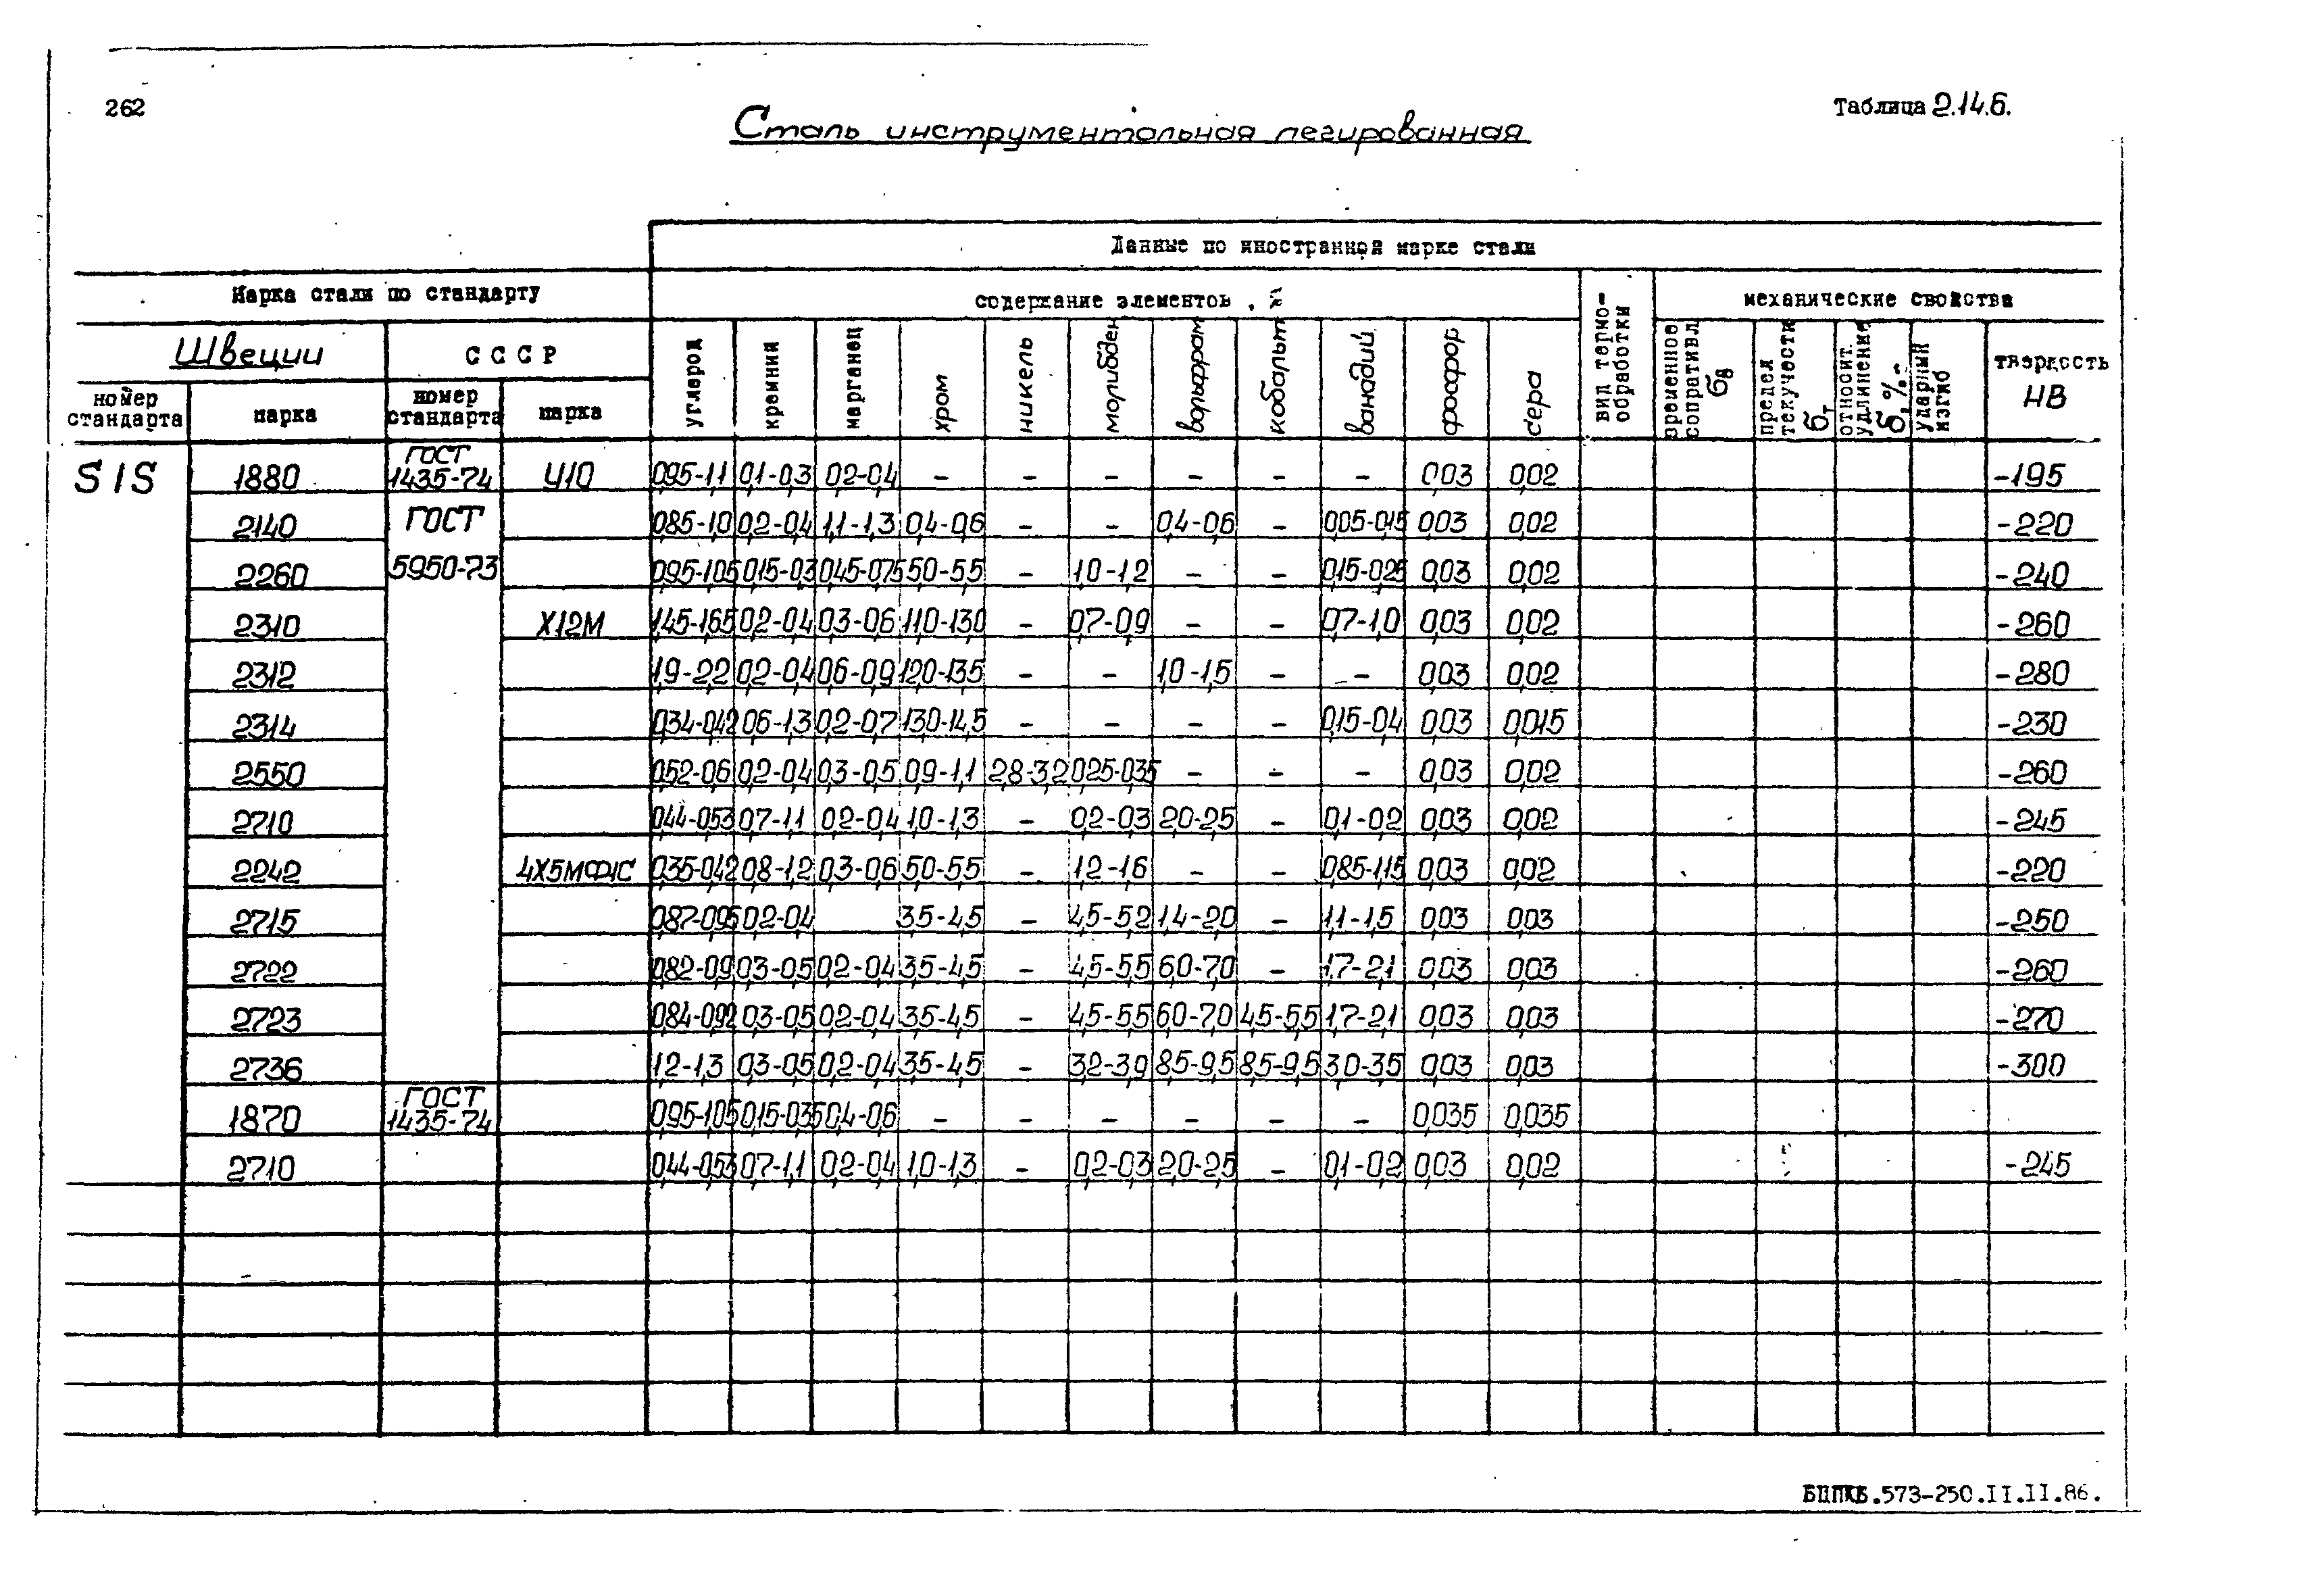 262
Таблица 2.14.6.
Сталь инструментальная легированная
Данные по иностранной марке стали
Марка стали по стандарту
содержание элементов, %
вид термо-
обработки
механические свойства
Швеции
СССР
углерод
кремний
марганец
хром
никель
молибден
вольфрам
кобальт
ванадий
фосфор
сера
временное
сопротивл.
σв
предел
текучести
σт
относит.
удлинение
δ, %
ударный
изгиб
твердость
НВ
номер
стандарта
марка
номер
стандарта
марка
SIS 1880 ГОСТ 1435-74 У10 0,95-1,1 0,1-0,3 0,2-0,4 – – – – – – 0,03 0,02 -195
2140 ГОСТ 0,85-1,0 0,2-0,4 1,1-1,3 0,4-0,6 – – 0,4-0,6 – 0,05-0,15 0,03 0,02 -220
2260 5950-73 0,95-1,05 0,15-0,3 0,45-0,75 5,0-5,5 – 1,0-1,2 – – 0,15-0,25 0,03 0,02 -240
2310 Х12М 1,45-1,65 0,2-0,4 0,3-0,6 11,0-13,0 – 0,7-0,9 – – 0,7-1,0 0,03 0,02 -260
2312 1,9-2,2 0,2-0,4 0,6-0,9 12,0-13,5 – – 1,0-1,5 – – 0,03 0,02 -280
2314 0,34-0,42 0,6-1,3 0,2-0,7 13,0-14,5 – – – – 0,15-0,4 0,03 0,015 -230
2550 0,52-0,6 0,2-0,4 0,3-0,5 0,9-1,1 2,8-3,2 0,25-0,35 – – – 0,03 0,02 -260
2710 0,44-0,53 0,7-1,1 0,2-0,4 1,0-1,3 – 0,2-0,3 2,0-2,5 – 0,1-0,2 0,03 0,02 -245
2242 4Х5МФ1С 0,35-0,42 0,8-1,2 0,3-0,6 5,0-5,5 – 1,2-1,6 – – 0,85-1,15 0,03 0,02 -220
2715 0,87-0,95 0,2-0,4 3,5-4,5 – 4,5-5,2 1,4-2,0 – 1,1-1,5 0,03 0,03 -250
2722 0,82-0,9 0,3-0,5 0,2-0,4 3,5-4,5 – 4,5-5,5 6,0-7,0 – 1,7-2,1 0,03 0,03 -260
2723 0,84-0,92 0,3-0,5 0,2-0,4 3,5-4,5 – 4,5-5,5 6,0-7,0 4,5-5,5 1,7-2,1 0,03 0,03 -270
2736 1,2-1,3 0,3-0,5 0,2-0,4 3,5-4,5 – 3,2-3,9 8,5-9,5 8,5-9,5 3,0-3,5 0,03 0,03 -300
1870 ГОСТ 1435-74 0,95-1,05 0,15-0,35 0,4-0,6 – – – – – – 0,035 0,035
2710 0,44-0,53 0,7-1,1 0,2-0,4 1,0-1,3 – 0,2-0,3 2,0-2,5 – 0,1-0,2 0,03 0,02 -245
БППКБ.573-250.II.II.86.